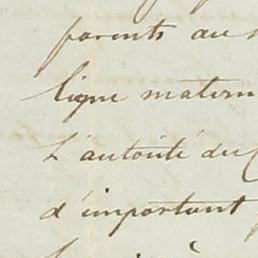 parents au
ligne matern
L'autorité du
d'important